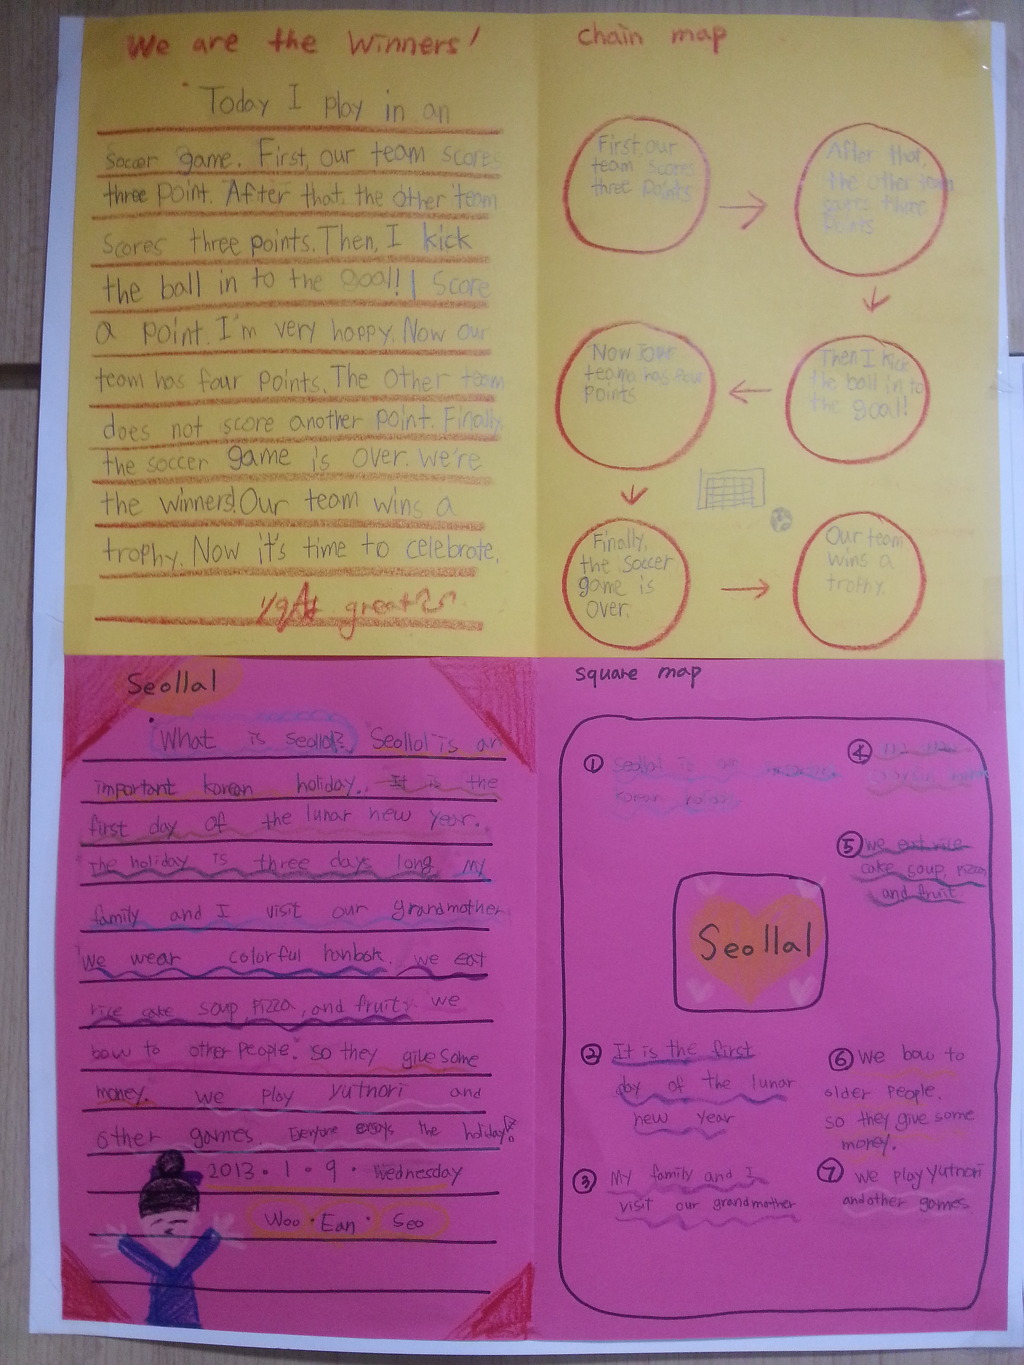 We are the Winners!
Today I play in an
soccer game. First, our team scores
three point. After that, the other team
scores three points. Then, I kick
the ball in to the goal! I score
a point. I'm very happy. Now our
team has four points. The other team
does not score another point. Finally,
the soccer game is over. We're
the winners! Our team wins a
trophy. Now it's time to celebrate.
great
chain map
First, our
team scores
three points
After that,
the other team
three
points
Then I kick
the ball in to
the goal!
Now our
team has four
points
Finally,
the soccer
game is
over.
Our team
wins a
trophy.
Seollal
What is seollal? Seollal is an
important korean holiday. It is the
first day of the lunar new year.
The holiday is three days long. My
family and I visit our grandmother
We wear colorful hanbok. we eat
rice cake soup, pizza, and fruit. we
bow to other people. so they give some
money. we play yutnori and
other games. Everyone enjoys the holiday
2013 · 1 · 9 · Wednesday
Woo · Ean · Seo
square map
① Seollal is an
korean
② It is the first
day of the lunar
new year
③ My family and I
visit our grandmother
④
⑤ we eat rice
cake soup, pizza,
and fruit.
Seollal
⑥ we bow to
older people.
so they give some
money.
⑦ we play yutnori
and other games.